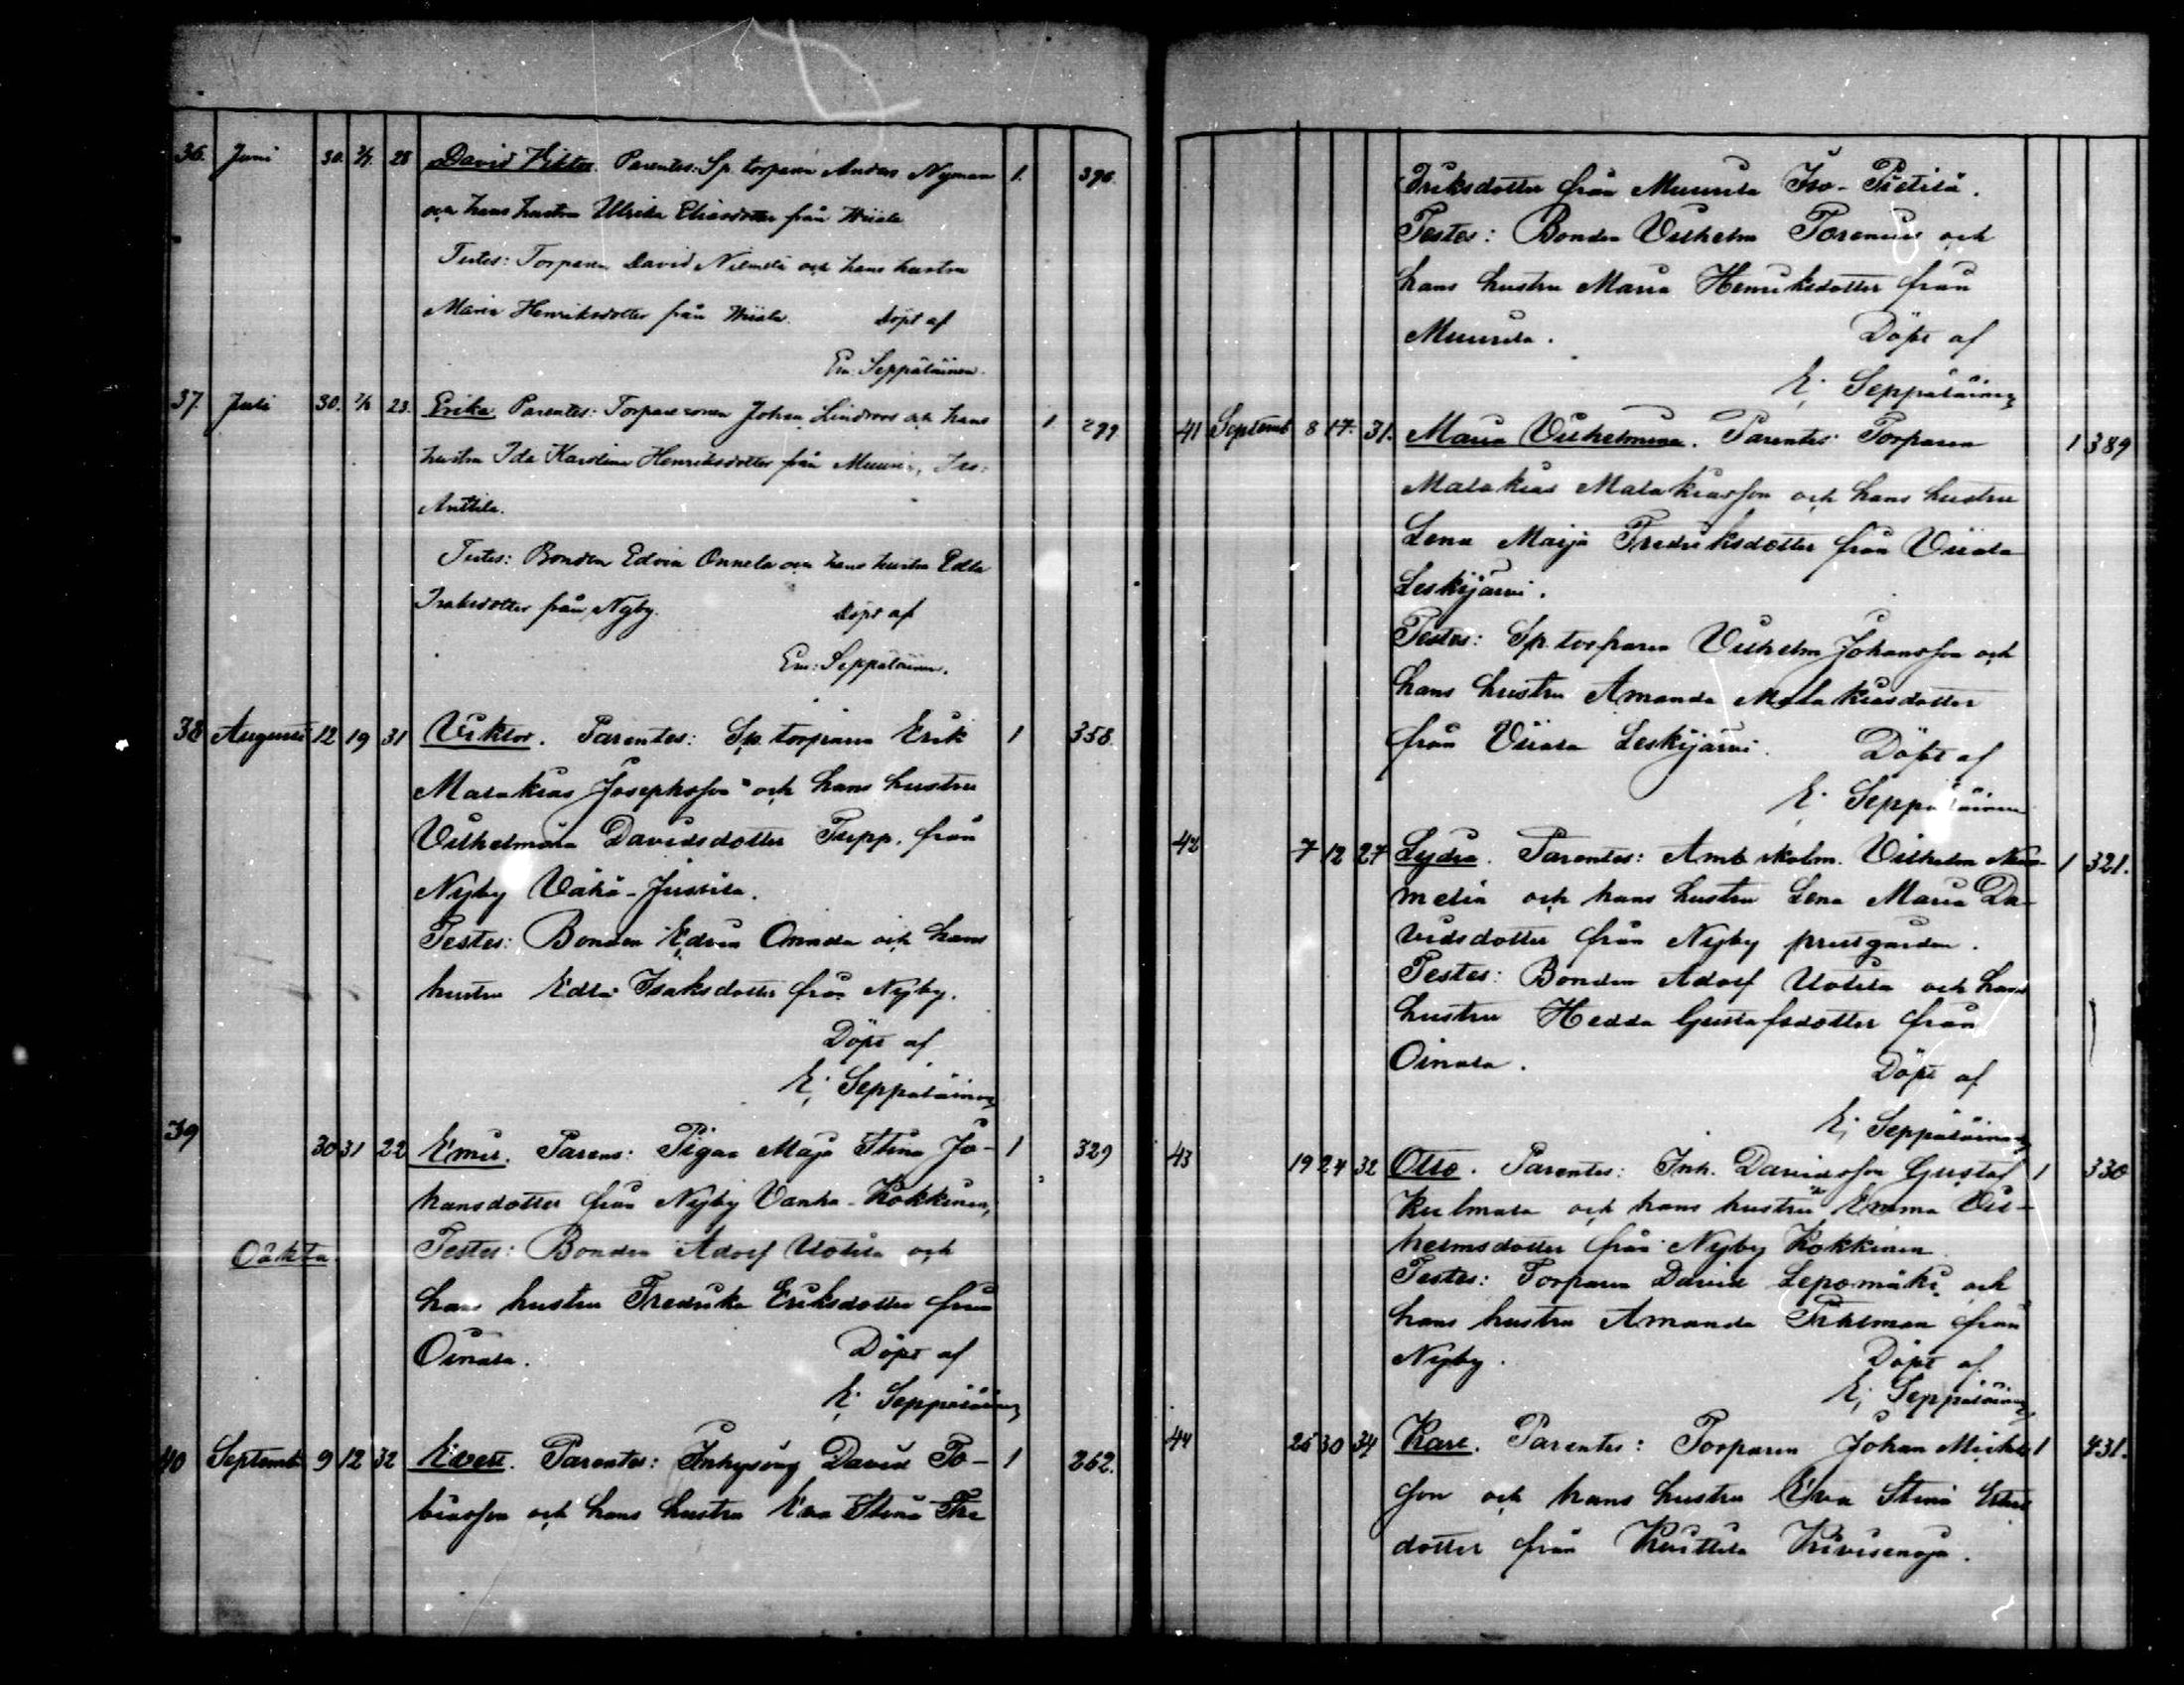 36. Juni 30. 2/7. 28 David Viktor. Parentes: Sp. torparen Anders Nyman 1. 396.
och hans hustru Ulrika Eliasdotter från Wiiala
Testes: Torparen David Niemelä och hans hustru
Maria Henriksdotter från Wiiala. Döpt af
Em. Seppäläinen.
37. Juli 30. 23. Erika Parentes: Torparesonen Johan Lindroos och hans 1 299
hustru Ida Karolina Henriksdotter från Iso-
Anttila.
Testes: Bonden Edvin Onnela och hans hustru Edla
Isaksdotter från Nyby. Döpt af
Em: Seppäläinen.
38 Augusti 12 19 31 Viktor. Parentes: Sp. torparen Erik 1 358.
Malakias Josephsson och hans hustru
Vilhelmina Davidsdotter från
Nyby Vähä-Jussila.
Testes: Bonden Edvin Onnela och hans
hustru Edla Isaksdotter från Nyby.
Döpt af
E; Seppäläinen
39 30 31 22 Emil. Parens: Pigan Maja Stina Jo- 1 329
hansdotter från Nyby Vanha-Kokkinen,
Oäkta. Testes: Bonden Adolf Uotila och
hans hustru Fredrika Eriksdotter från
Oinala. Döpt af
E; Seppäläinen
40 Septemb 9 12 32 Evert. Parentes: Inhysing David To- 1 262.
biasson och hans hustru Eva Stina Fre
driksdotter från Muurila Iso-Pietilä.
Testes: Bonden Vilhelm och
hans hustru Maria Henriksdotter från
Muurila. Döpt af
E; Seppäläinen
41 Septemb 8 17. 31. Maria Vilhelmina. Parentes: Torparen 1 389
Malakias Malakiasson och hans hustru
Lena Maija Fredriksdotter från Viiala
Leskijärvi.
Testes: Sp. torparen Vilhelm Johansson och
hans hustru Amanda Malakiasdotter
från Viiala Leskijärvi. Döpt af
E; Seppäläinen
42 7 12 27 Lydia. Parentes: Amb. skolm. Vilhelm Nie- 1 321.
melä och hans hustru Lena Maria Da-
vidsdotter från Nyby prestgården.
Testes: Bonden Adolf Uotila och hans
hustru Hedda Gustafsdotter från
Oinala. Döpt af
E; Seppäläinen
43 19 24 32 Otto. Parentes: Inh. Davidsson Gustaf 1 330
Kulmala och hans hustru Emma Vil-
helmsdotter från Nyby Kokkinen.
Testes: Torparen David Lepomäki och
hans hustru Amanda från
Nyby. Döpt af
E; Seppäläinen
44 25 30 34 Karl. Parentes: Torparen Johan Michels 1 431.
son och hans hustru Eva Stina
dotter från Kurttila Kivisenoja.